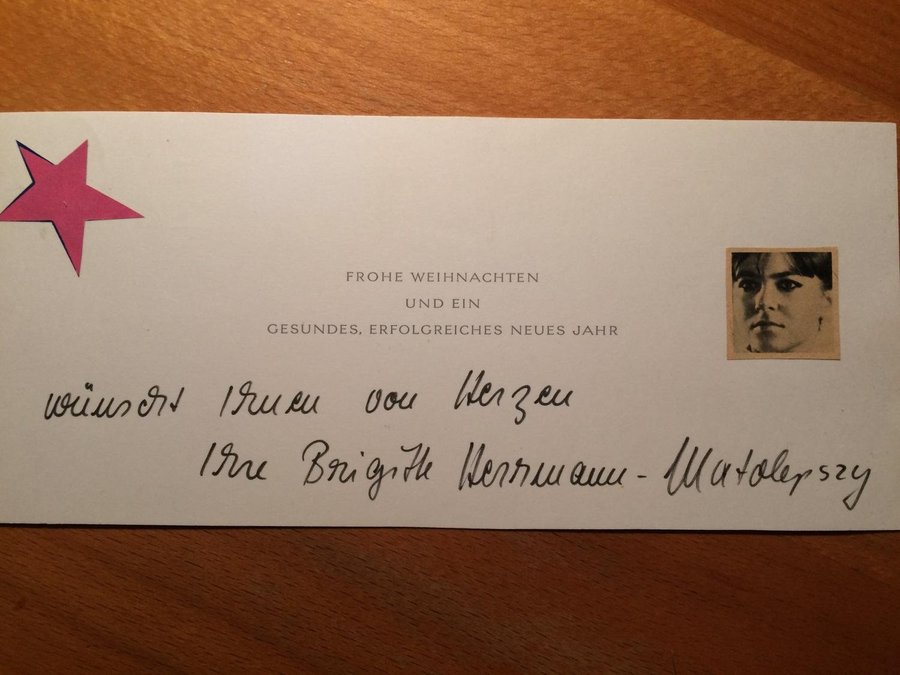 FROHE WEIHNACHTEN
UND EIN
GESUNDES, ERFOLGREICHES NEUES JAHR
wünscht Ihnen von Herzen
Ihre Brigitte Herrmann-Matolepszy